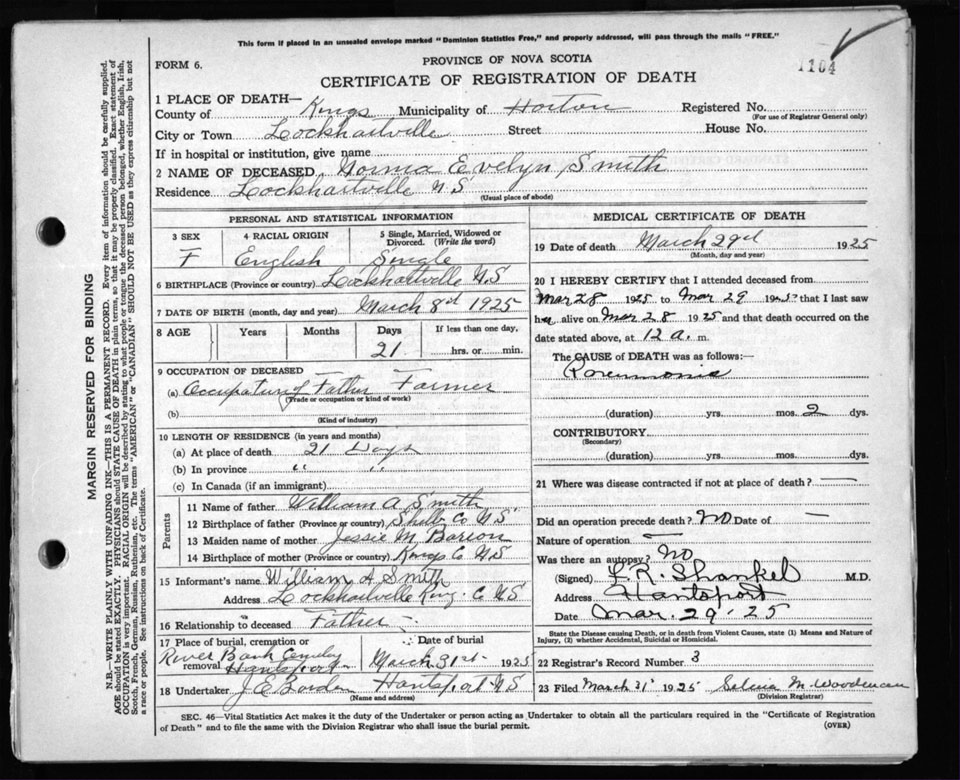 This form if placed in an unsealed envelope marked "Dominion Statistics Free," and properly addressed, will pass through the mails "FREE."
1104
FORM 6.
PROVINCE OF NOVA SCOTIA
CERTIFICATE OF REGISTRATION OF DEATH
1 PLACE OF DEATH—
County of Kings Municipality of Horton Registered No.
(For use of Registrar General only)
City or Town Lockhartville Street House No.
If in hospital or institution, give name
2 NAME OF DECEASED Norma Evelyn Smith
Residence Lockhartville N.S
(Usual place of abode)
PERSONAL AND STATISTICAL INFORMATION
3 SEX 4 RACIAL ORIGIN 5 Single, Married, Widowed or Divorced. (Write the word)
F English Single
6 BIRTHPLACE (Province or country) Lockhartville N.S
7 DATE OF BIRTH (month, day and year) March 8 1925
8 AGE Years Months Days If less than one day,
21 hrs. or min.
9 OCCUPATION OF DECEASED
(a) Occupation of Father Farmer
(Trade or occupation or kind of work)
(b)
(Kind of industry)
10 LENGTH OF RESIDENCE (in years and months)
(a) At place of death 21 Days
(b) In province " "
(c) In Canada (if an immigrant)
Parents
11 Name of father William A Smith
12 Birthplace of father (Province or country) Shelb Co N.S
13 Maiden name of mother Jessie M.
14 Birthplace of mother (Province or country) Kings Co N.S
15 Informant's name William A Smith
Address Lockhartville King. C N.S
16 Relationship to deceased Father
17 Place of burial, cremation or removal River Bank Hantsport
Date of burial March 31st 1925
18 Undertaker J E Borden Hantsport N.S
(Name and address)
MEDICAL CERTIFICATE OF DEATH
19 Date of death March 29 1925
(Month, day and year)
20 I HEREBY CERTIFY that I attended deceased from
Mar 28 1925 to Mar 29 1925 that I last saw
her alive on Mar 28 1925 and that death occurred on
date stated above, at 12 a. m.
The CAUSE OF DEATH was as follows:—
Pneumonia
(duration) yrs. mos. 2 dys.
CONTRIBUTORY
(Secondary)
(duration) yrs. mos. dys.
21 Where was disease contracted if not at place of death? —
Did an operation precede death? No Date of —
Nature of operation —
Was there an autopsy? No
(Signed) L. R. Shankel M.D.
Address Hantsport
Date Mar. 29 - 25
State the Disease causing Death, or in death from Violent Causes, state (1) Means and Nature of
Injury, (2) whether Accidental, Suicidal or Homicidal.
22 Registrar's Record Number 3
23 Filed March 31 1925 Selena M. Woodman
(Division Registrar)
SEC. 46—Vital Statistics Act makes it the duty of the Undertaker or person acting as Undertaker to obtain all the particulars required in the "Certificate of Registration
of Death" and to file the same with the Division Registrar who shall issue the burial permit.
(OVER)
MARGIN RESERVED FOR BINDING
N.B.—WRITE PLAINLY WITH UNFADING INK—THIS IS A PERMANENT RECORD. Every item of information should be carefully supplied.
AGE should be stated EXACTLY. PHYSICIANS should STATE CAUSE OF DEATH in plain terms, so that it may be properly classified. Exact statement of
OCCUPATION is very important. RACIAL ORIGIN will be described by stating to what people or tongue the deceased person belonged, whether English, Irish,
Scotch, French, German, Russian, Ruthenian, etc. The terms "AMERICAN" or "CANADIAN" SHOULD NOT BE USED as they express citizenship but not
a race or people. See instructions on back of Certificate.